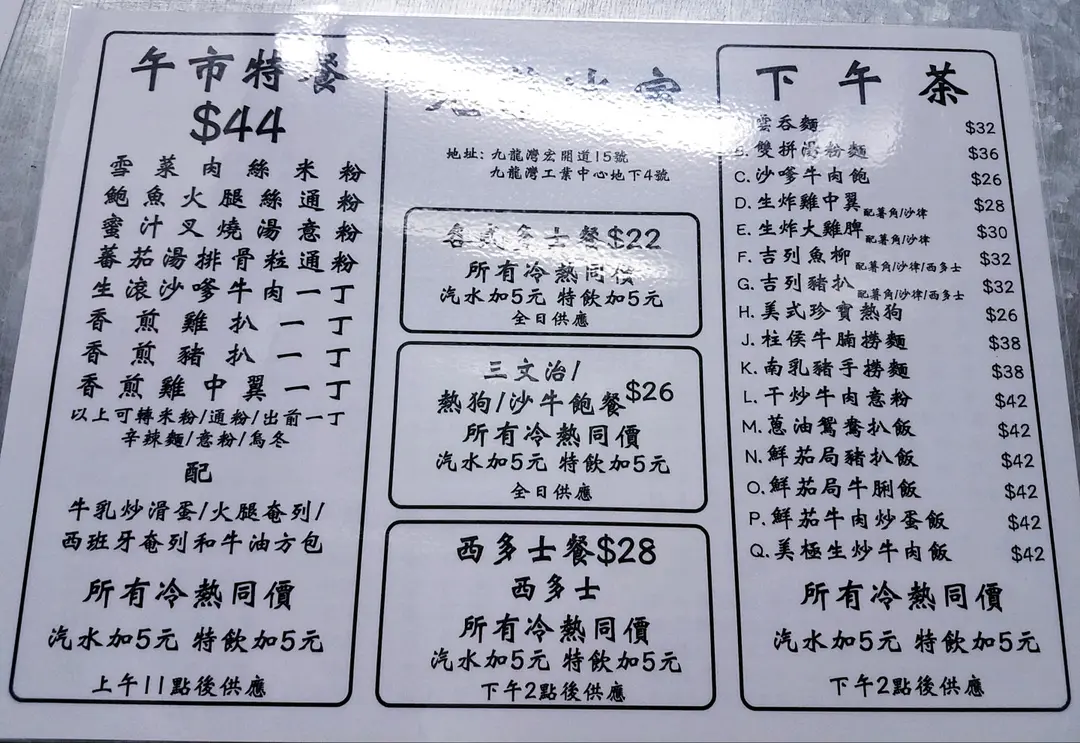 午市特餐
$44
雪菜肉絲米粉
鮑魚火腿絲通粉
蜜汁叉燒湯意粉
蕃茄湯排骨粒通粉
生滾沙嗲牛肉一丁
香煎雞扒一丁
香煎豬扒一丁
香煎雞中翼一丁
以上可轉米粉/通粉/出前一丁
辛辣麵/意粉/烏冬
配
牛乳炒滑蛋/火腿奄列/
西班牙奄列和牛油方包
所有冷熱同價
汽水加5元 特飲加5元
上午11點後供應
地址: 九龍灣宏開道15號
九龍灣工業中心地下4號
各式多士餐$22
所有冷熱同價
汽水加5元 特飲加5元
全日供應
三文治/
熱狗/沙牛飽餐$26
所有冷熱同價
汽水加5元 特飲加5元
全日供應
西多士餐$28
西多士
所有冷熱同價
汽水加5元 特飲加5元
下午2點後供應
下午茶
雲吞麵 $32
B. 雙拼湯粉麵 $36
C. 沙嗲牛肉飽 $26
D. 生炸雞中翼 配薯角/沙律 $28
E. 生炸大雞脾 配薯角/沙律 $30
F. 吉列魚柳 配薯角/沙律/西多士 $32
G. 吉列豬扒 配薯角/沙律/西多士 $32
H. 美式珍寶熱狗 $26
J. 柱侯牛腩撈麵 $38
K. 南乳豬手撈麵 $38
L. 干炒牛肉意粉 $42
M. 蔥油鴛鴦扒飯 $42
N. 鮮茄局豬扒飯 $42
O. 鮮茄局牛脷飯 $42
P. 鮮茄牛肉炒蛋飯 $42
Q. 美極生炒牛肉飯 $42
所有冷熱同價
汽水加5元 特飲加5元
下午2點後供應